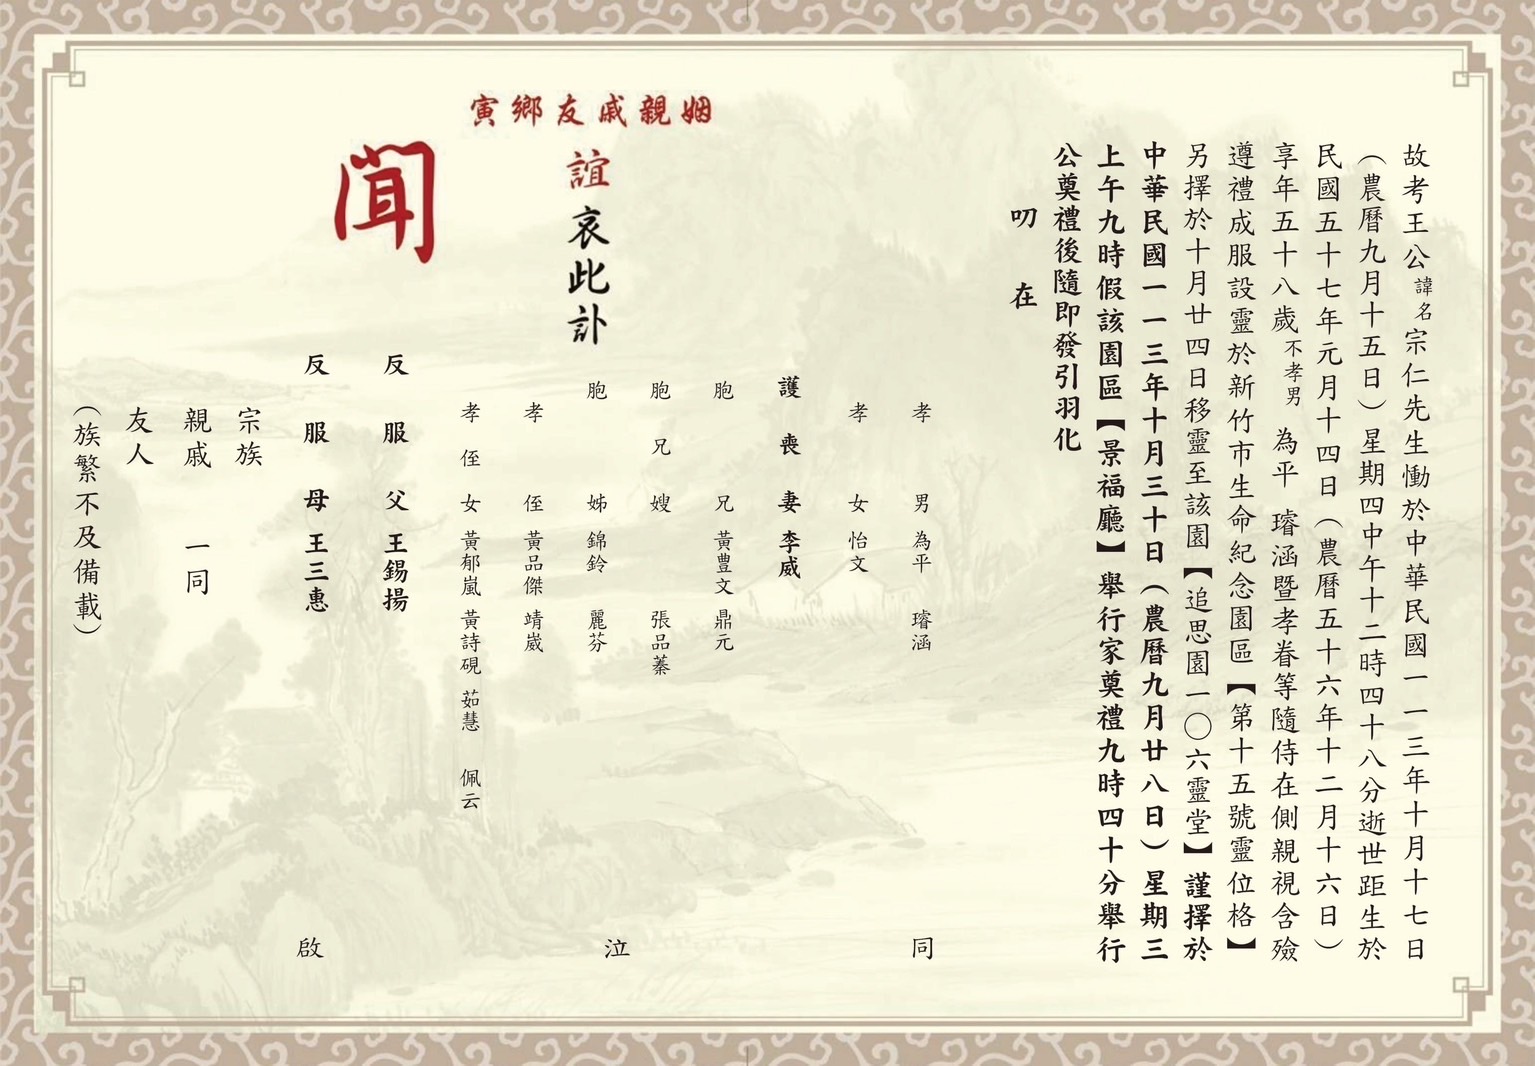 故考王公諱名宗仁先生慟於中華民國一一三年十月十七日
（農曆九月十五日）星期四中午十二時四十八分逝世距生於
民國五十七年元月十四日（農曆五十六年十二月十六日）
享年五十八歲不孝男 為平 璿涵暨孝眷等隨侍在側親視含殮
遵禮成服設靈於新竹市生命紀念園區【第十五號靈位格】
另擇於十月廿四日移靈至該園【追思園一〇六靈堂】謹擇於
中華民國一一三年十月三十日（農曆九月廿八日）星期三
上午九時假該園區【景福廳】舉行家奠禮九時四十分舉行
公奠禮後隨即發引羽化
叨 在
姻親戚友鄉寅
誼哀此訃
聞
孝 男 為平 璿涵
孝 女 怡文
護喪妻 李威
胞 兄 黃豊文 鼎元
胞兄嫂 張品蓁
胞 姊 錦鈴 麗芬
孝 侄 黃品傑 靖崴
孝侄女 黃郁嵐 黃詩硯 茹慧 佩云
反服父 王錫揚
反服母 王三惠
宗族
親戚 一同
友人
（族繁不及備載）
同 泣 啟